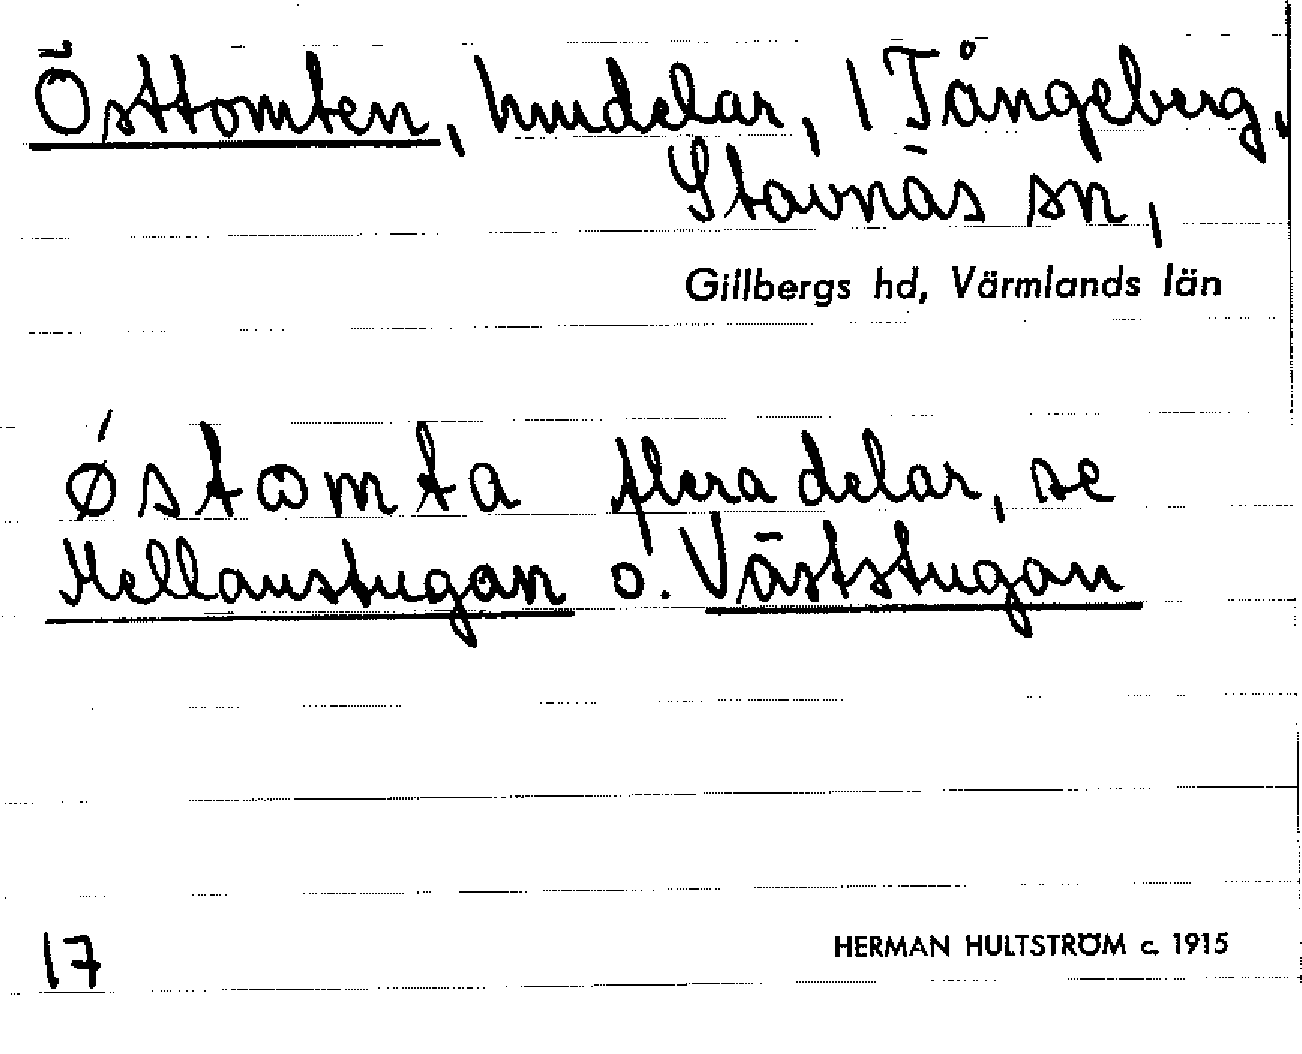 Östtomten, hmdelar, 1 Tångeberg,
Stavnäs sn,
Gillbergs hd, Värmlands län
ǿstωmta flera delar, se
Mellanstugan o. Väststugan
17
HERMAN HULTSTRÖM c. 1915